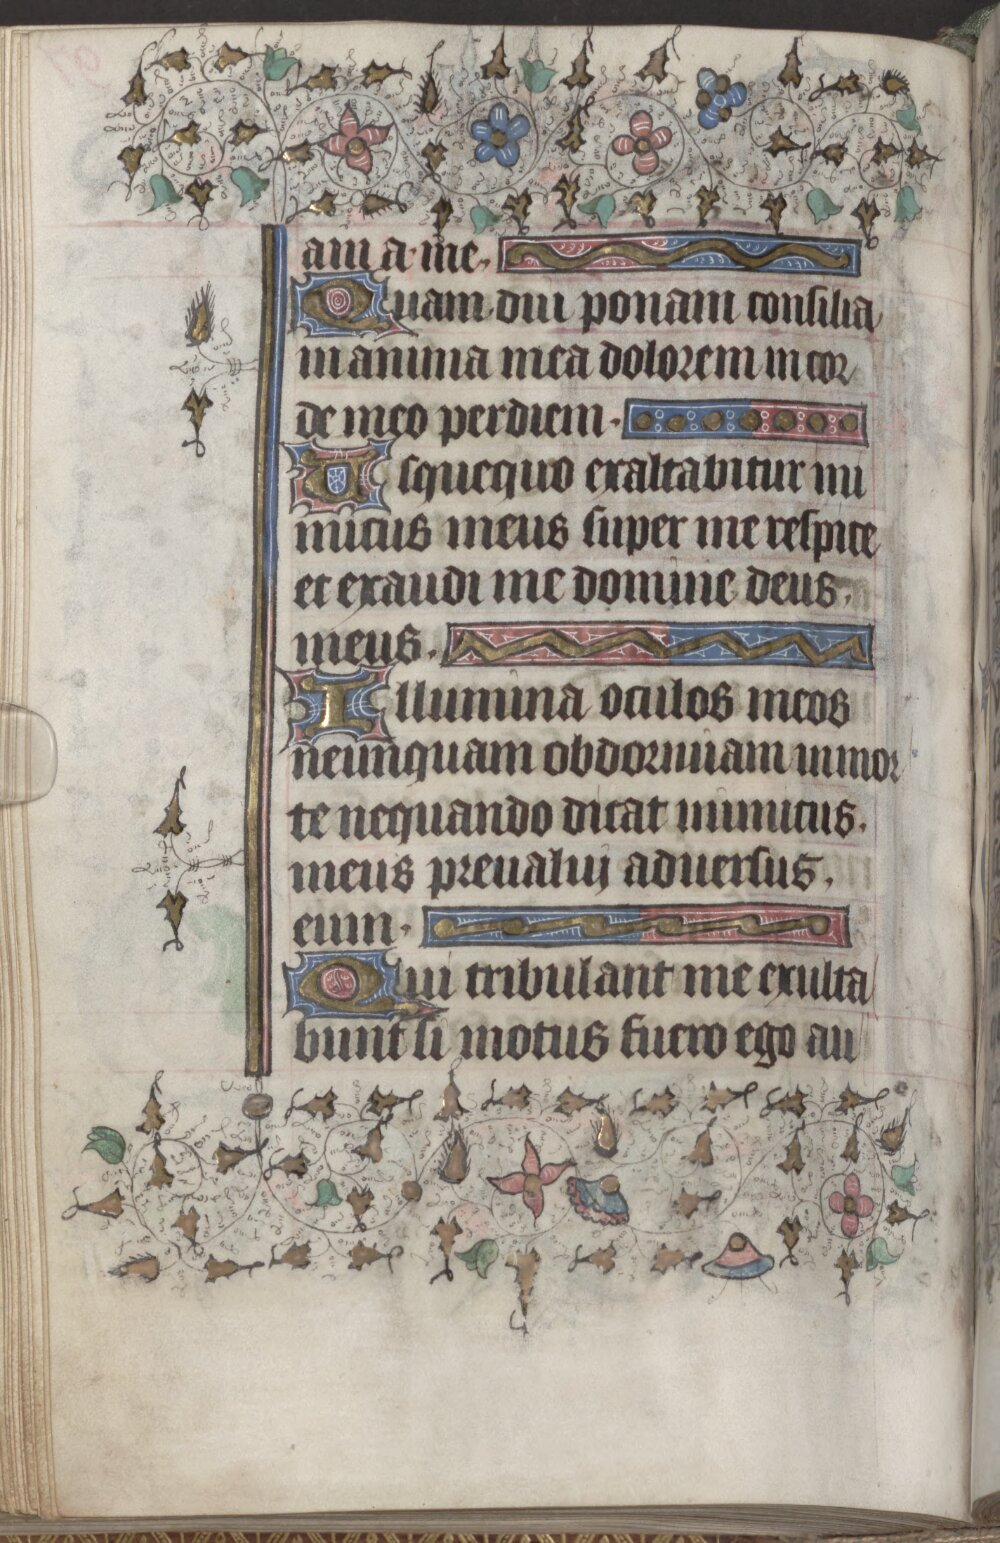 am a me.
Quam diu ponam consilia
in anima mea dolorem in cor
de meo per diem.
Usquequo exaltabitur ini
micus meus super me respice
et exaudi me domine deus.
meus.
Illumina oculos meos
ne unquam obdormiam in mor
te nequando dicat inimicus.
meus prevalui adversus.
eum.
Qui tribulant me exulta
bunt si motus fuero ego au